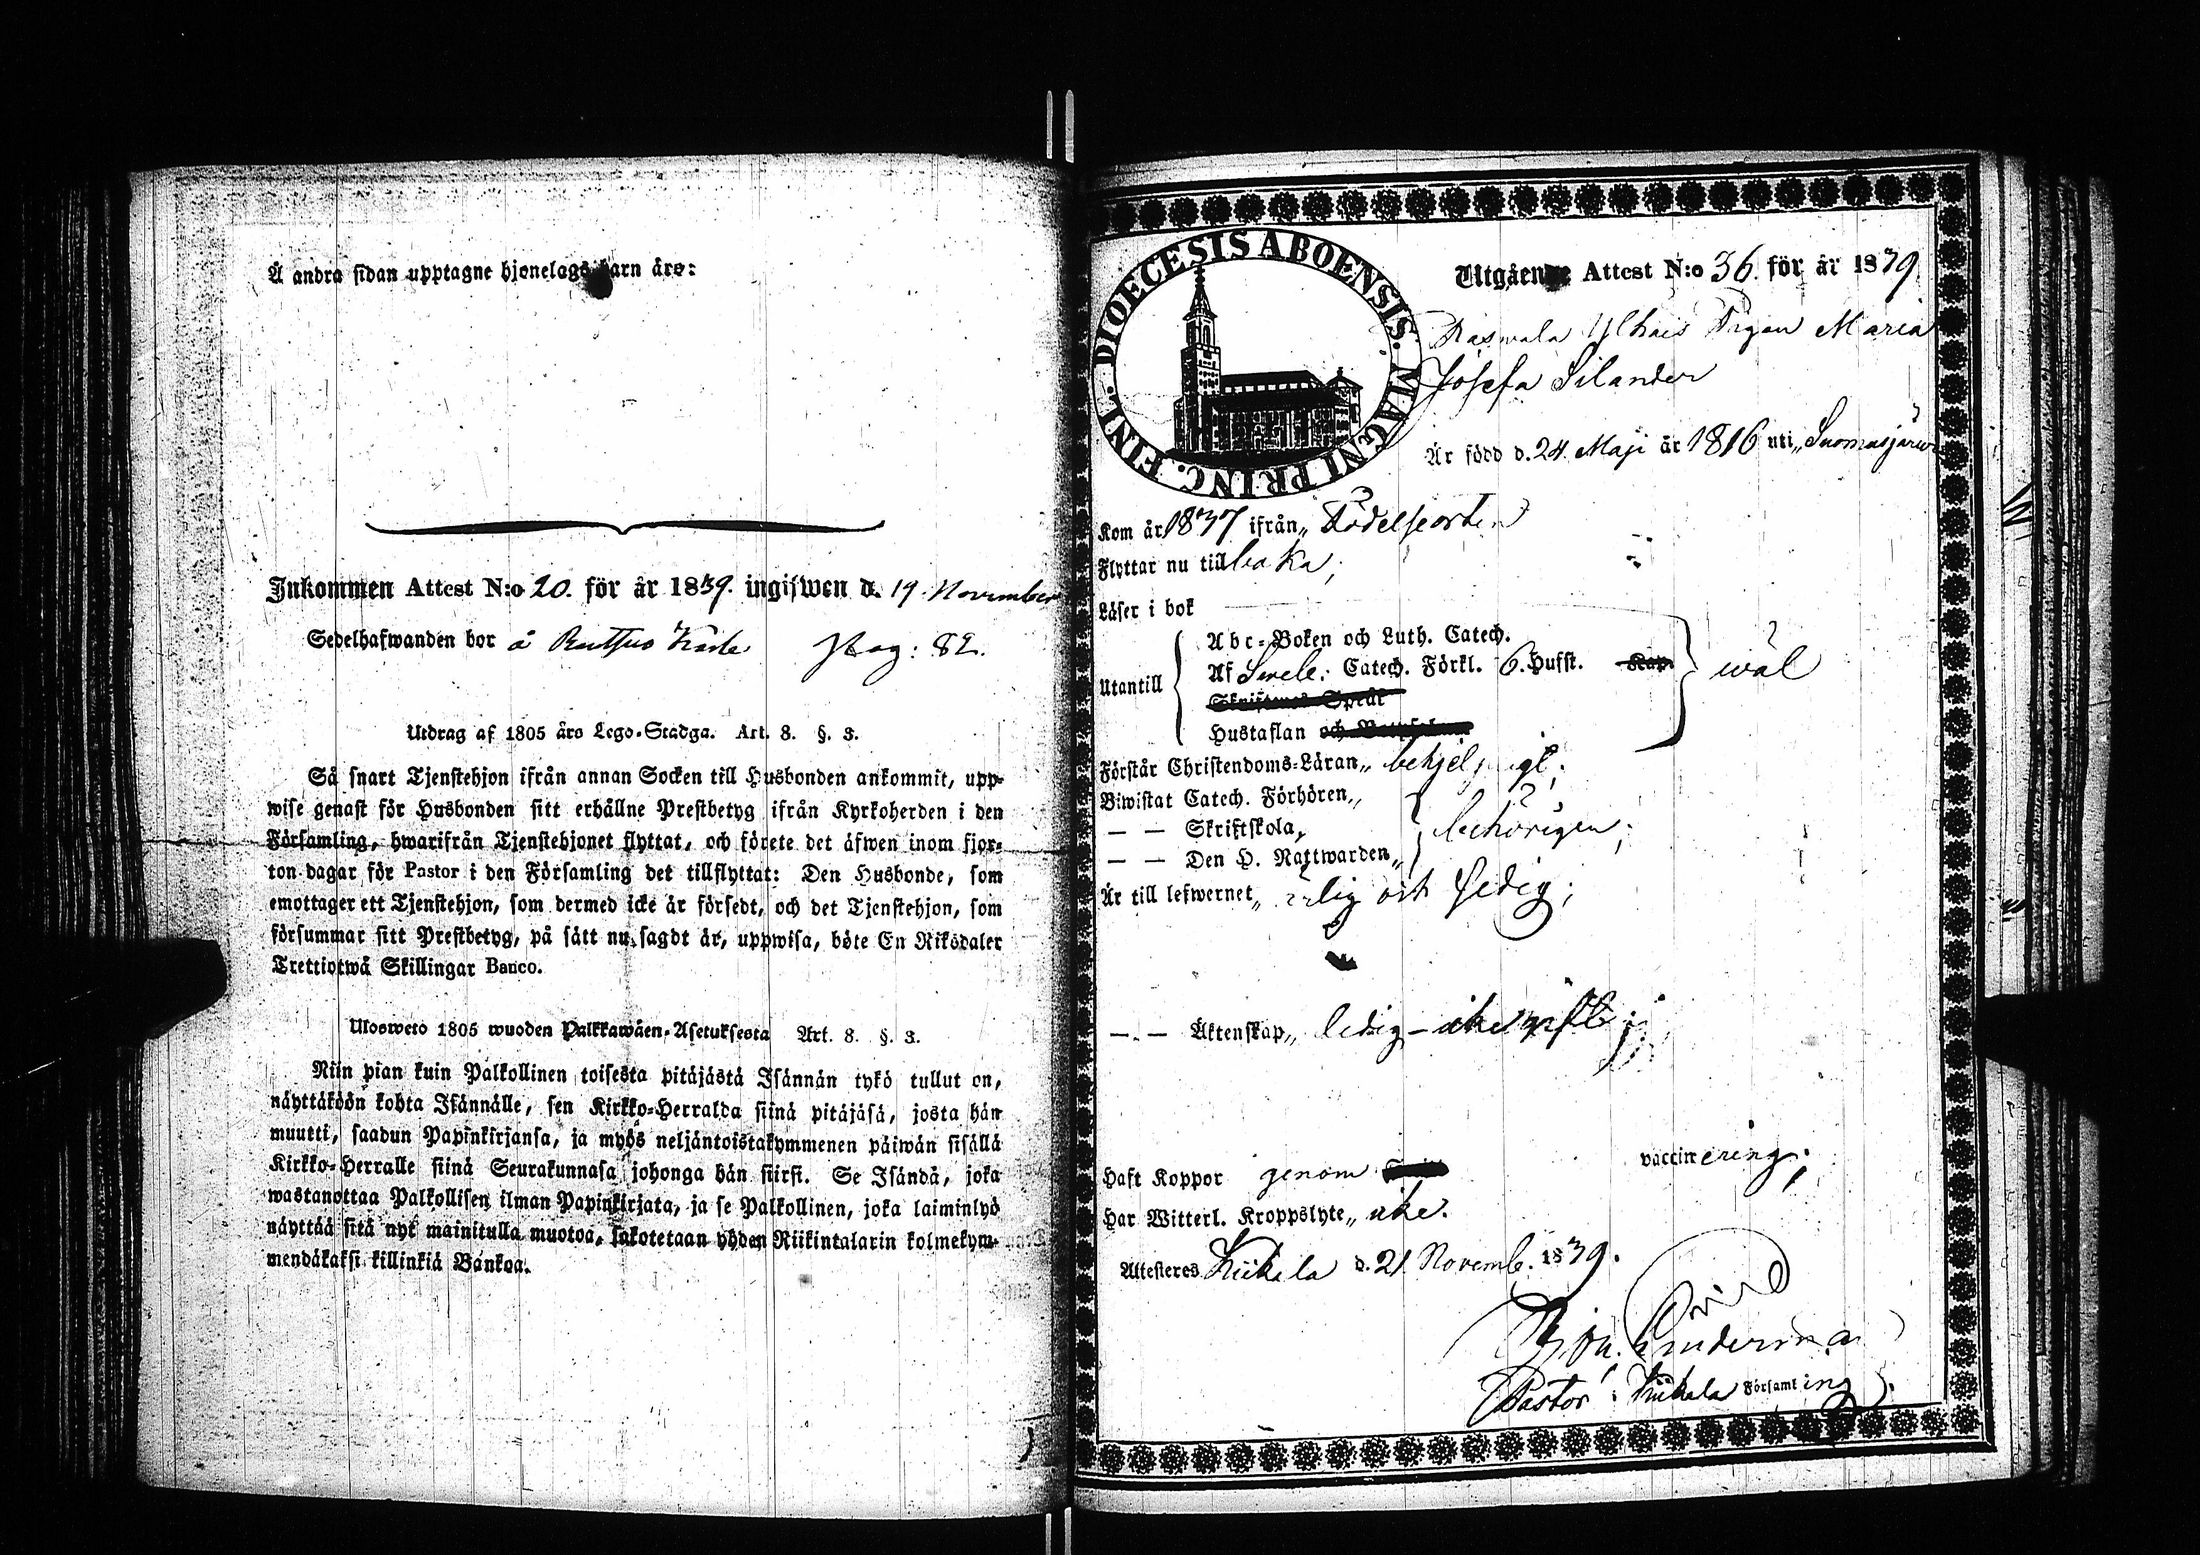 Å andra sidan upptagne hjonelags barn äro:
Inkommen Attest N:o 20. för år 1839. ingifwen d. 19 November
Sedelhafwanden bor å Pag: 82.
Utdrag af 1805 års Lego-Stadga. Art. 8. §. 3.
Så snart Tjenstehjon ifrån annan Socken till Husbonden ankommit, upp-
wise genast för Husbonden sitt erhållne Prestbetyg ifrån Kyrkoherden i den
Församling, hwarifrån Tjenstehjonet flyttat, och förete det äfwen inom fjor-
ton dagar för Pastor i den Församling det tillflyttat: Den Husbonde, som
emottager ett Tjenstehjon, som dermed icke är försedt, och det Tjenstehjon, som
försummar sitt Prestbetyg, på sätt nu sagdt är, uppwisa, böte En Riksdaler
Trettiotwå Skillingar Banco.
Ulosweto 1805 wuoden Palkkawäen-Asetuksesta Art. 8. §. 3.
Niin pian kuin Palkollinen toisesta pitäjästä Isännän tykö tullut on,
näyttäköön kohta Isännälle, sen Kirkko-Herralda siinä pitäjäsä, josta hän
muutti, saadun Papinkirjansa, ja myös neljäntoistakymmenen päiwän sisällä
Kirkko-Herralle siinä Seurakunnasa johonga hän siirsi. Se Isändä, joka
wastanottaa Palkollisen ilman Papinkirjata, ja se Palkollinen, joka laiminlyö
näyttää sitä nyt mainitulla muotoa, sakotetaan yhden Riikintalarin kolmekym-
mendäkaksi killinkiä Bankoa.
DIOECESIS ABOENSIS. MAGNI PRINC. FINL.
Utgående Attest N:o 36. för år 1839.
Pigan Maria
Josefa Silander
Är född d. 24 Maji år 1816 uti Suomusjärwi
Kom år 1837 ifrån Födelseorten
Flyttar nu tillbaka;
Läser i bok
Utantill
Abc-Boken och Luth. Catech.
Af Sweb. Catech. Förkl. 6. Hufst. Kap. wäl
Skriftenes Språk
Hustaflan och
Förstår Christendoms-Läran behjelpligt;
Biwistat Catech. Förhören
— — Skriftskola, behörigen;
— — Den H. Nattwarden
Är till lefwernet ärlig och sedig;
— — Äktenskap ledig – icke gift;
Haft Koppor genom vaccinering;
Har Witterl. Kroppslyte icke.
Attesteres Kiikala d. 21. Novemb. 1839.
Pastor i Kiikala Församling.